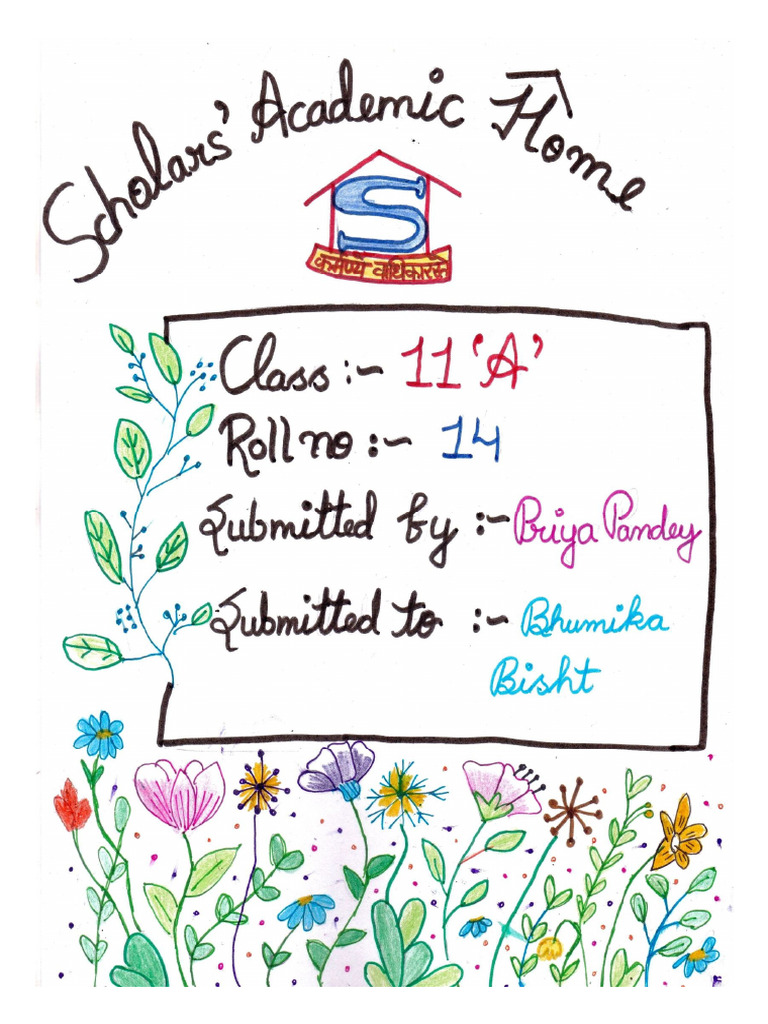 Scholars' Academic Home
S
कर्मण्ये वाधिकारस्ते
Class :- 11 'A'
Roll no :- 14
Submitted by :- Priya Pandey
Submitted to :- Bhumika
Bisht